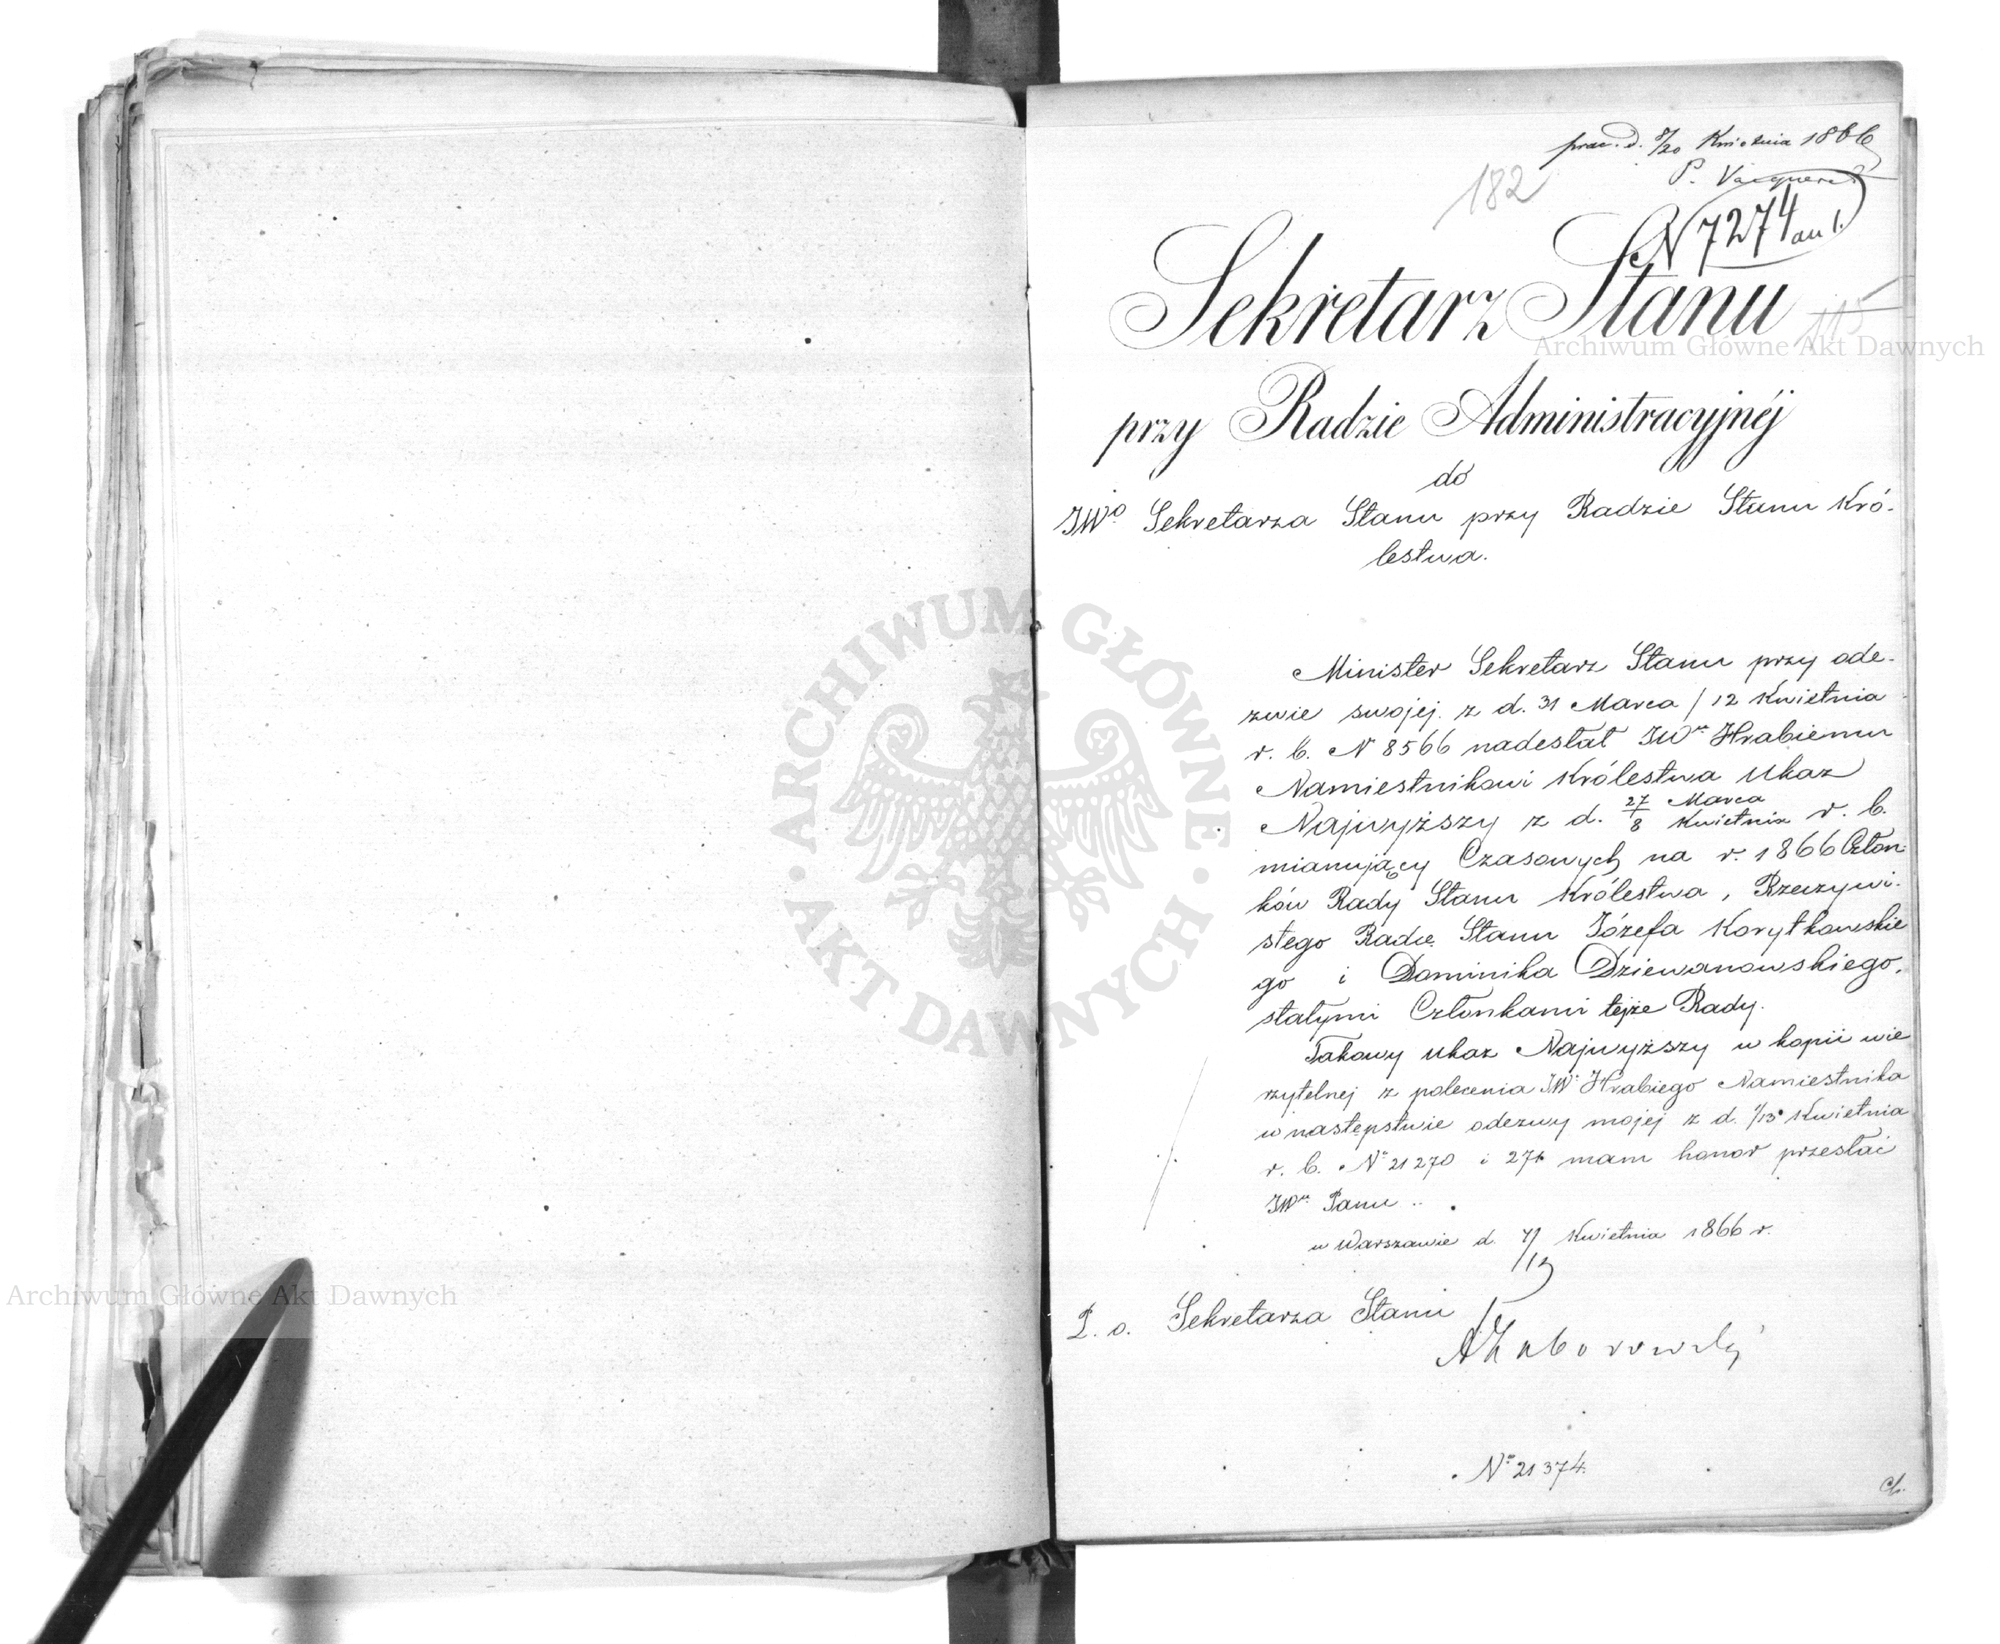 prae. d. 8/20 Kwietnia 1866
P. Vacqueret
182
N 7274 au 1.
Sekretarz Stanu
115
Archiwum Główne Akt Dawnych
przy Radzie Administracyjnéj
do
JWo Sekretarza Stanu przy Radzie Stanu Kró-
lestwa.
Minister Sekretarz Stanu przy ode-
zwie swojej z d. 31 Marca / 12 Kwietnia
r. b. N 8566 nadesłał JWu Hrabiemu
Namiestnikowi Królestwa Ukaz
Najwyższy z d. 27 Marca / 8 Kwietnia r. b.
mianujący Czasowych na r. 1866 Człon-
ków Rady Stanu Królestwa, Rzeczywi-
stego Radcę Stanu Józefa Korytkowskie
go i Dominika Dziewanowskiego,
stałymi Członkami tejże Rady.
Takowy ukaz Najwyższy w kopii wie
rzytelnej z polecenia JW. Hrabiego Namiestnika
w następstwie odezwy mojej z d. 1/13 Kwietnia
r. b. No 21270 i 271 mam honor przesłać
JWu Panu ..
w Warszawie d. 7/19 Kwietnia 1866 r.
P. o. Sekretarza Stanu
AZaborowski
No 21374.
ARCHIWUM GŁÓWNE • AKT DAWNYCH •
Archiwum Główne Akt Dawnych